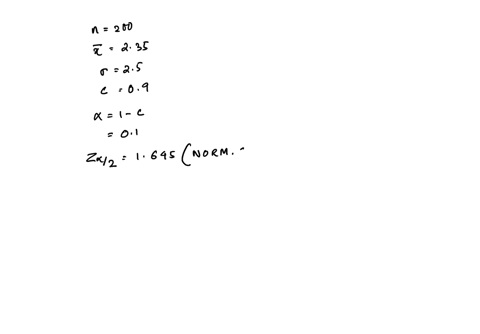 n = 200
x̄ = 2.35
σ = 2.5
c = 0.9
α = 1 - c
= 0.1
Zα/2 = 1.645 (NORM.